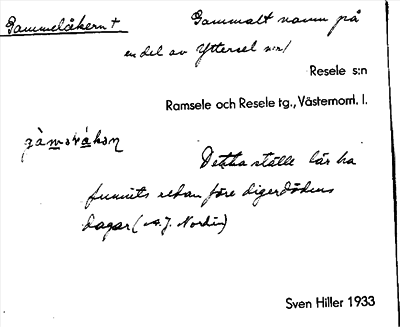 Gammelåkern + Gammalt namn på
en del av Yttersel n:r 1
Resele s:n
Ramsele och Resele tg., Västernorrl. l.
Detta ställe lär ha
funnits redan före digerdödens
dagar (A. J. Nordin)
Sven Hiller 1933